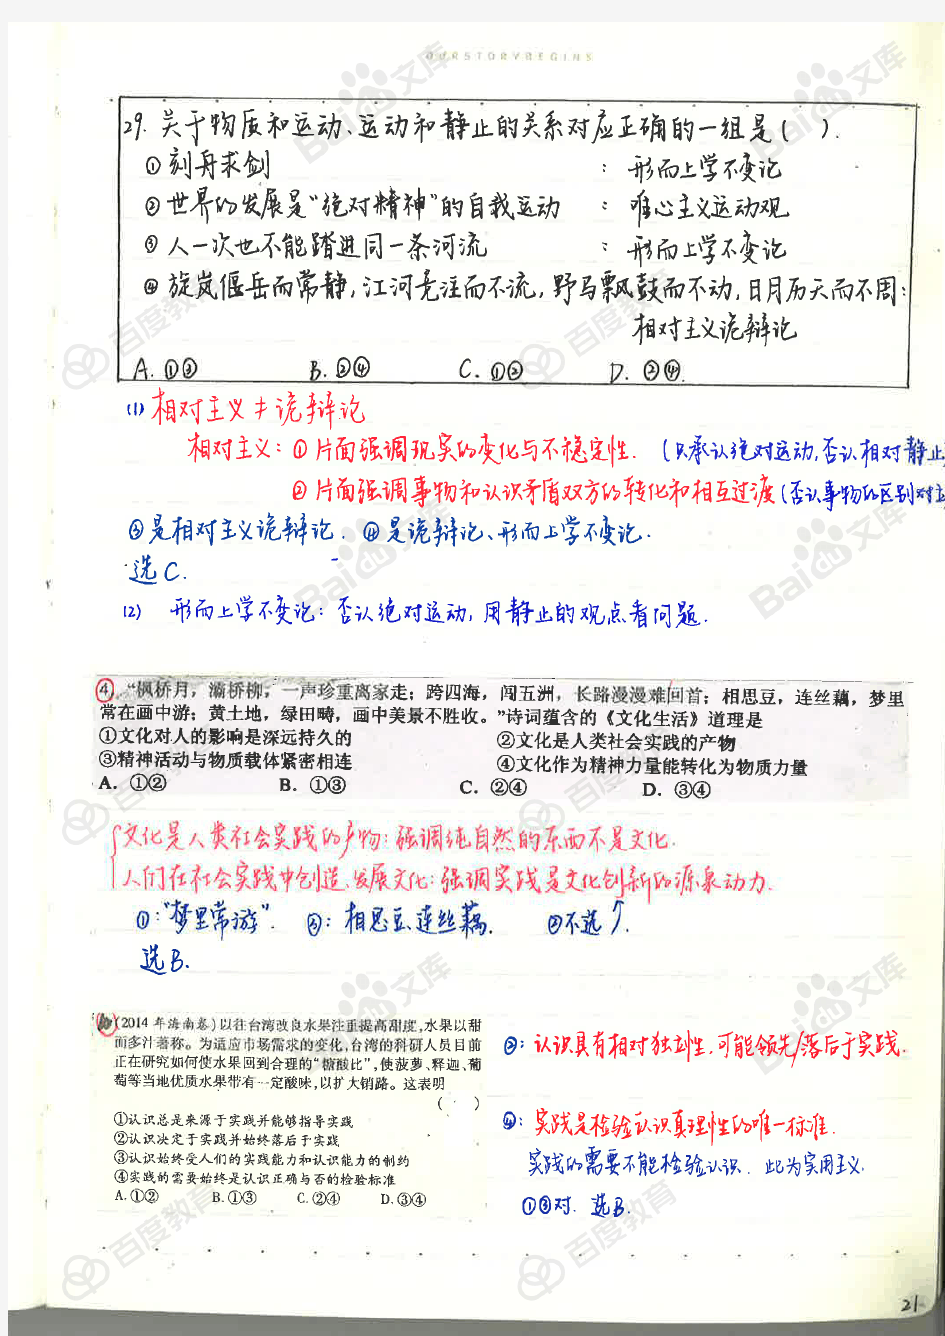 OURSTORYBEGINS
29. 关于物质和运动、运动和静止的关系对应正确的一组是( ).
①刻舟求剑 : 形而上学不变论
②世界的发展是“绝对精神”的自我运动 : 唯心主义运动观
③人一次也不能踏进同一条河流 : 形而上学不变论
④旋岚偃岳而常静,江河竞注而不流,野马飘鼓而不动,日月历天而不周:
相对主义诡辩论
A.①③ B.②④ C.①② D.②④
(1) 相对主义≠诡辩论
相对主义:①片面强调现实的变化与不稳定性.(只承认绝对运动,否认相对静止
②片面强调事物和认识矛盾双方的转化和相互过渡(否认事物的区别对立
③是相对主义诡辩论. ④是诡辩论、形而上学不变论.
选C.
(2) 形而上学不变论:否认绝对运动,用静止的观点看问题.
④.“枫桥月,灞桥柳,一声珍重离家走;跨四海,闯五洲,长路漫漫难回首;相思豆,连丝藕,梦里
常在画中游;黄土地,绿田畴,画中美景不胜收。”诗词蕴含的《文化生活》道理是
①文化对人的影响是深远持久的 ②文化是人类社会实践的产物
③精神活动与物质载体紧密相连 ④文化作为精神力量能转化为物质力量
A. ①② B. ①③ C. ②④ D. ③④
文化是人类社会实践的产物:强调纯自然的东西不是文化.
人们在社会实践中创造、发展文化:强调实践是文化创新的源泉动力.
①:“梦里常游”. ③:相思豆、连丝藕. ②不选↑.
选B.
(2014年海南卷)以往台湾改良水果注重提高甜度,水果以甜
而多汁著称。为适应市场需求的变化,台湾的科研人员目前
正在研究如何使水果回到合理的“糖酸比”,使菠萝、释迦、葡
萄等当地优质水果带有一定酸味,以扩大销路。这表明
( )
①认识总是来源于实践并能够指导实践
②认识决定于实践并始终落后于实践
③认识始终受人们的实践能力和认识能力的制约
④实践的需要始终是认识正确与否的检验标准
A.①② B.①③ C.②④ D.③④
②:认识具有相对独立性,可能领先/落后于实践.
④:实践是检验认识真理性的唯一标准.
实践的需要不能检验认识.此为实用主义.
①③对.选B.
21
Bai文库
百度教育